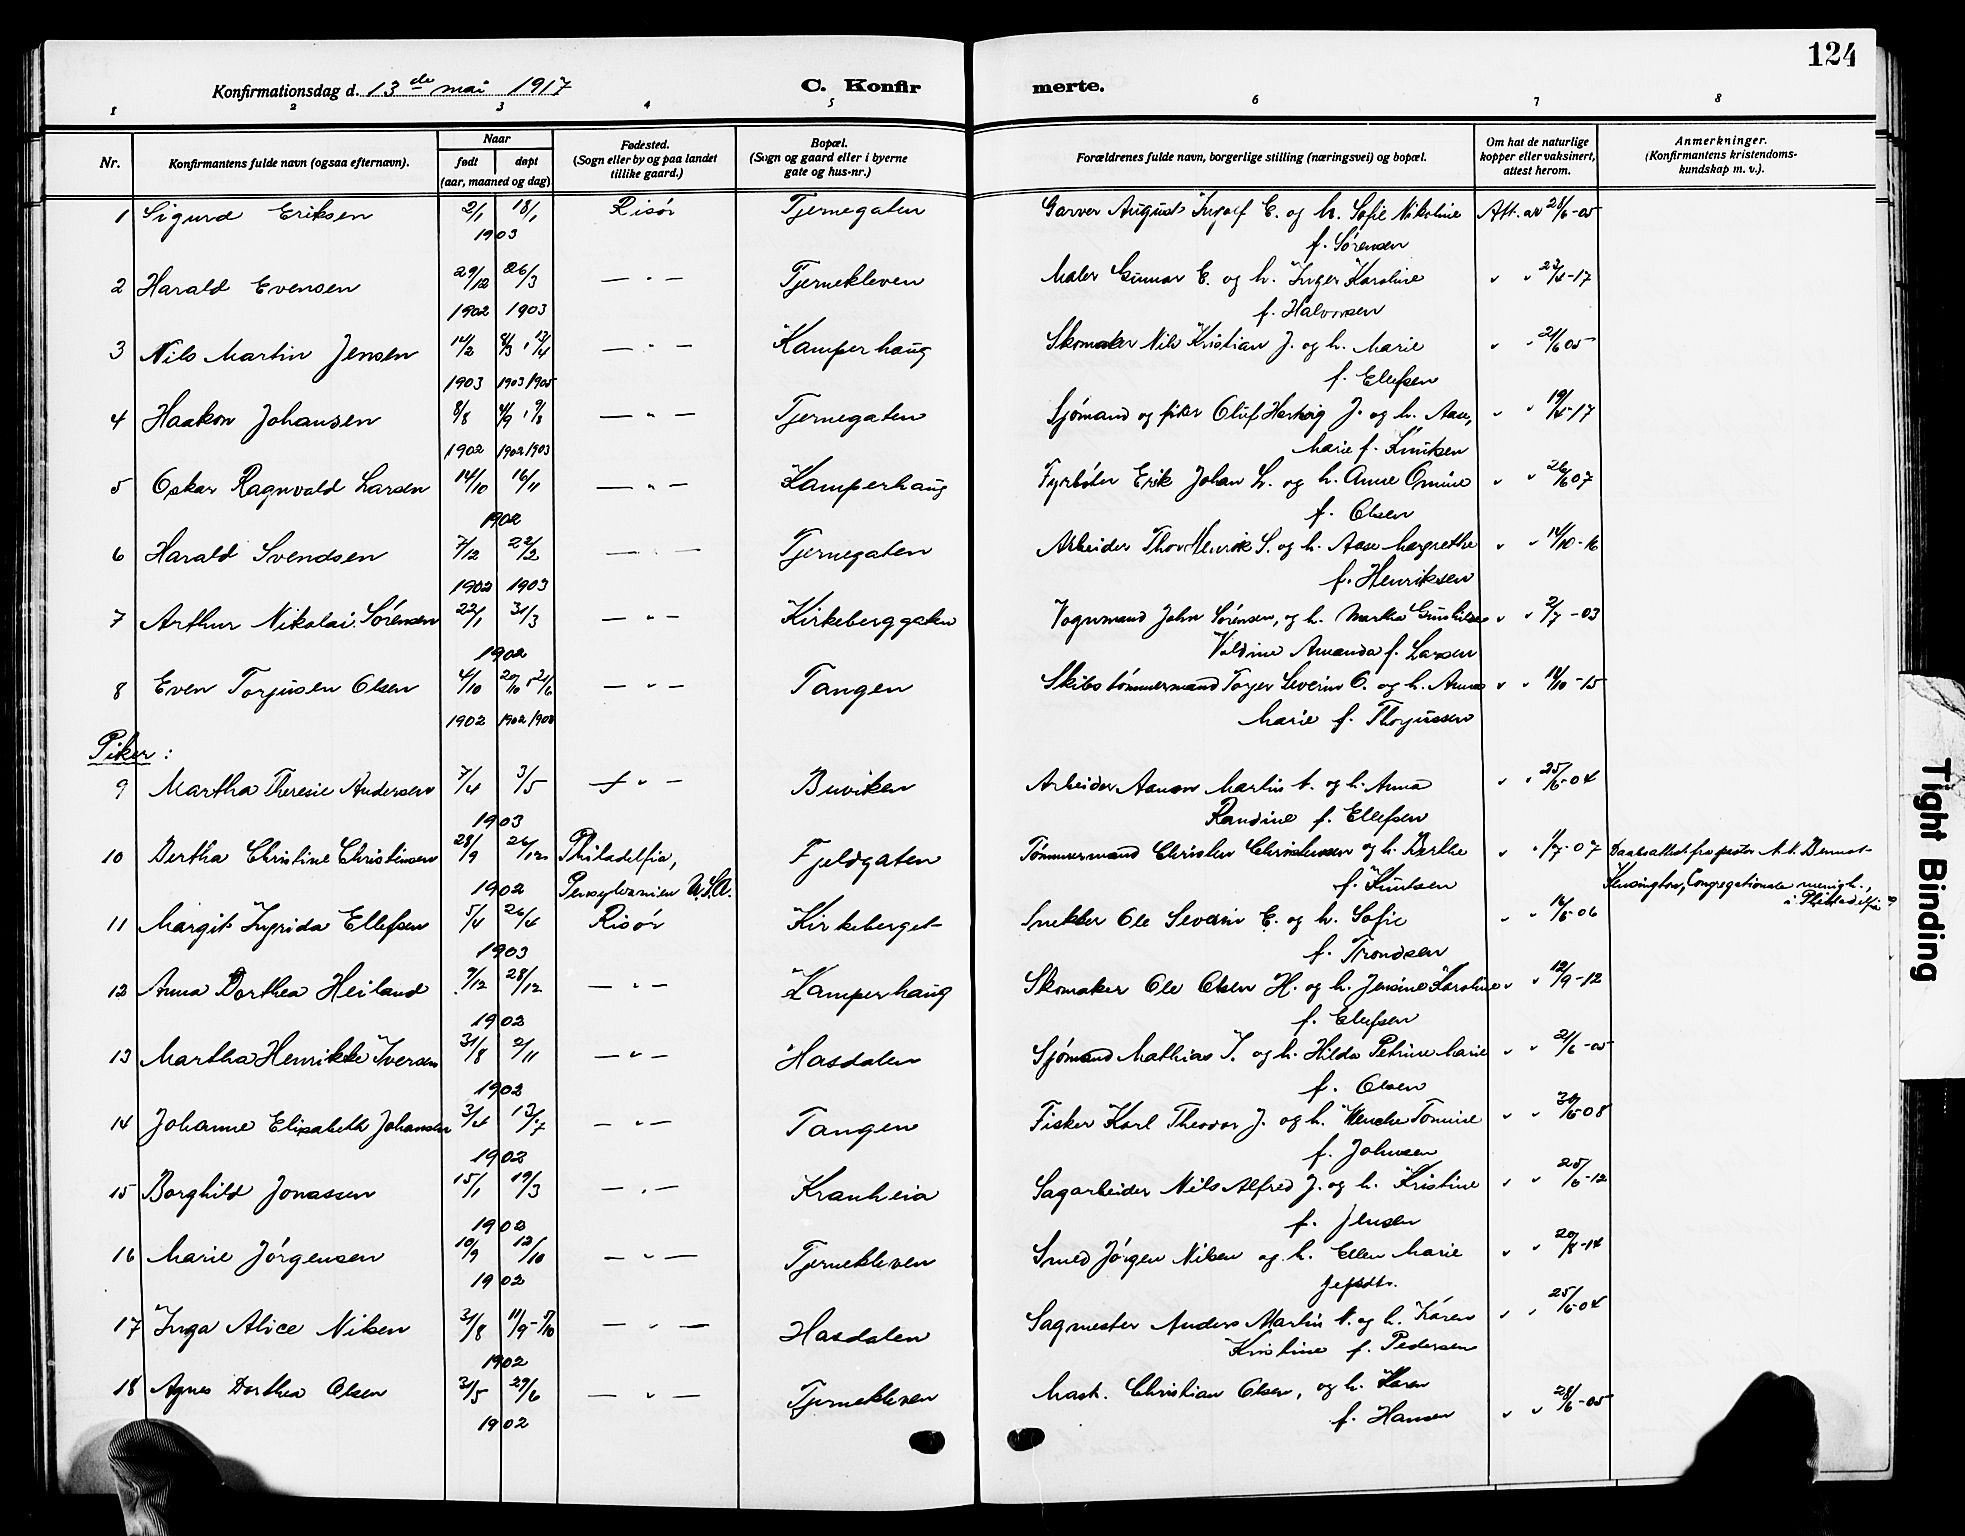 124
Konfirmationsdag d. 13de mai 1917
C. Konfirmerte.
1 2 3 4 5 6 7 8
Nr.
Konfirmantens fulde navn (ogsaa efternavn).
Naar
født døpt
(aar, maaned og dag)
Fødested.
(Sogn eller by og paa landet
tillike gaard.)
Bopæl.
(Sogn og gaard eller i byerne
gate og hus-nr.)
Forældrenes fulde navn, borgerlige stilling (næringsvei) og bopæl.
Om hat de naturlige
kopper eller vaksinert,
attest herom.
Anmerkninger.
(Konfirmantens kristendoms-
kundskap m. v.).
1 Sigurd Eriksen 2/1 18/1 Risør Tjernegaten Garver August Ingolf E. og h. Sofie Nikoline Att. av 28/6-05
1903 f. Sørensen
2 Harald Evensen 29/12 26/3 — " — Tjernekleven Maler Gunnar E. og h. Inger Karoline " " 23/4-17
1902 1903 f. Halvorsen
3 Nils Martin Jensen 14/2 8/3, 13/4 — " — Kamperhaug Skomaker Nils Kristian J. og h. Marie " " 21/6 05
1903 1903 1905 f. Ellefsen
4 Haakon Johansen 8/8 4/9, 9/8 — " — Tjernegaten Sjømand og fisker Oluf Hartvig J. og h. Aase, " " 19/4-17
1902 1902 1903 Marie f. Knutsen
5 Oskar Ragnvald Larsen 14/10 16/11 — " — Kamperhaug Fyrbøter Erik Johan L. og h. Anne Omine " " 26/6 07
1902 f. Olsen
6 Harald Svendsen 7/12 22/2 — " — Tjernegaten Arbeider Thor Henrik S. og h. Aase Margrethe " " 14/10-16
1902 1903 f. Henriksen
7 Arthur Nikolai Sørensen 22/1 31/3 — " — Kirkeberggaten Vognmand John Sørensen, og h. Martha " " 2/7-03
1902 Valdine Amanda f. Larsen
8 Even Torjusen Olsen 4/10 20/10, 21/6 — " — Tangen Skibstømmermand Torjer Severin O. og h. Anna " " 14/10-15
1902 1902 1908 Marie f. Thorjussen
Piker:
9 Martha Theresie Andersen 7/4 3/5 — " — Buviken Arbeider Aanon Martin A. og h. Anna " " 25/6-04
1903 Randine f. Ellefsen
10 Bertha Christine Christensen 28/9 26/12 Philadelfia, Fjeldgaten Tømmermand Christen Christensen og h. Berthe " " 1/7-07 Daabsattest fra pastor
1902 Pensylvanien U.S.A. f. Knutsen Kensington, Congregationale menigh.,
i Philadelfia
11 Margit Ingrida Ellefsen 5/4 26/4 Risør Kirkeberget Snekker Ole Severin E. og h. Sofie " " 16/5-06
1903 f. Trondsen
12 Anna Dorthea Heiland 9/12 28/12 — " — Kamperhaug Skomaker Ole Olsen H. og h. Jensine Karoline " " 12/9-12
1902 f. Ellefsen
13 Martha Henrikke Iversen 31/8 2/11 — " — Hasdalen Sjømand Mathias I. og h. Hilda Petrine Marie " " 21/6-05
1902 f. Olsen
14 Johanne Elisabeth Johansen 3/4 13/7 — " — Tangen Fisker Karl Theodor J. og h. Wenche Tomine " " 30/5-08
1902 f. Johnsen
15 Borghild Jonassen 15/1 19/3 — " — Kranheia Sagarbeider Nils Alfred J. og h. Kristine " " 25/6-12
1902 f. Jensen
16 Marie Jørgensen 10/9 12/10 — " — Tjernekleven Smed Jørgen Nilsen og h. Ellen Marie " " 20/8-14
1902 Jefsdtr.
17 Inga Alice Nilsen 31/8 11/9-5/10 — " — Hasdalen Sagmester Anders Martin N. og h. Karen " " 25/6-04
1902 Kristine f. Pedersen
18 Agnes Dorthea Olsen 31/5 29/6 — " — Tjernekleven Mask. Christian Olsen, og h. Karen
1902 f. Hansen " " 28/6-05
Tight Binding